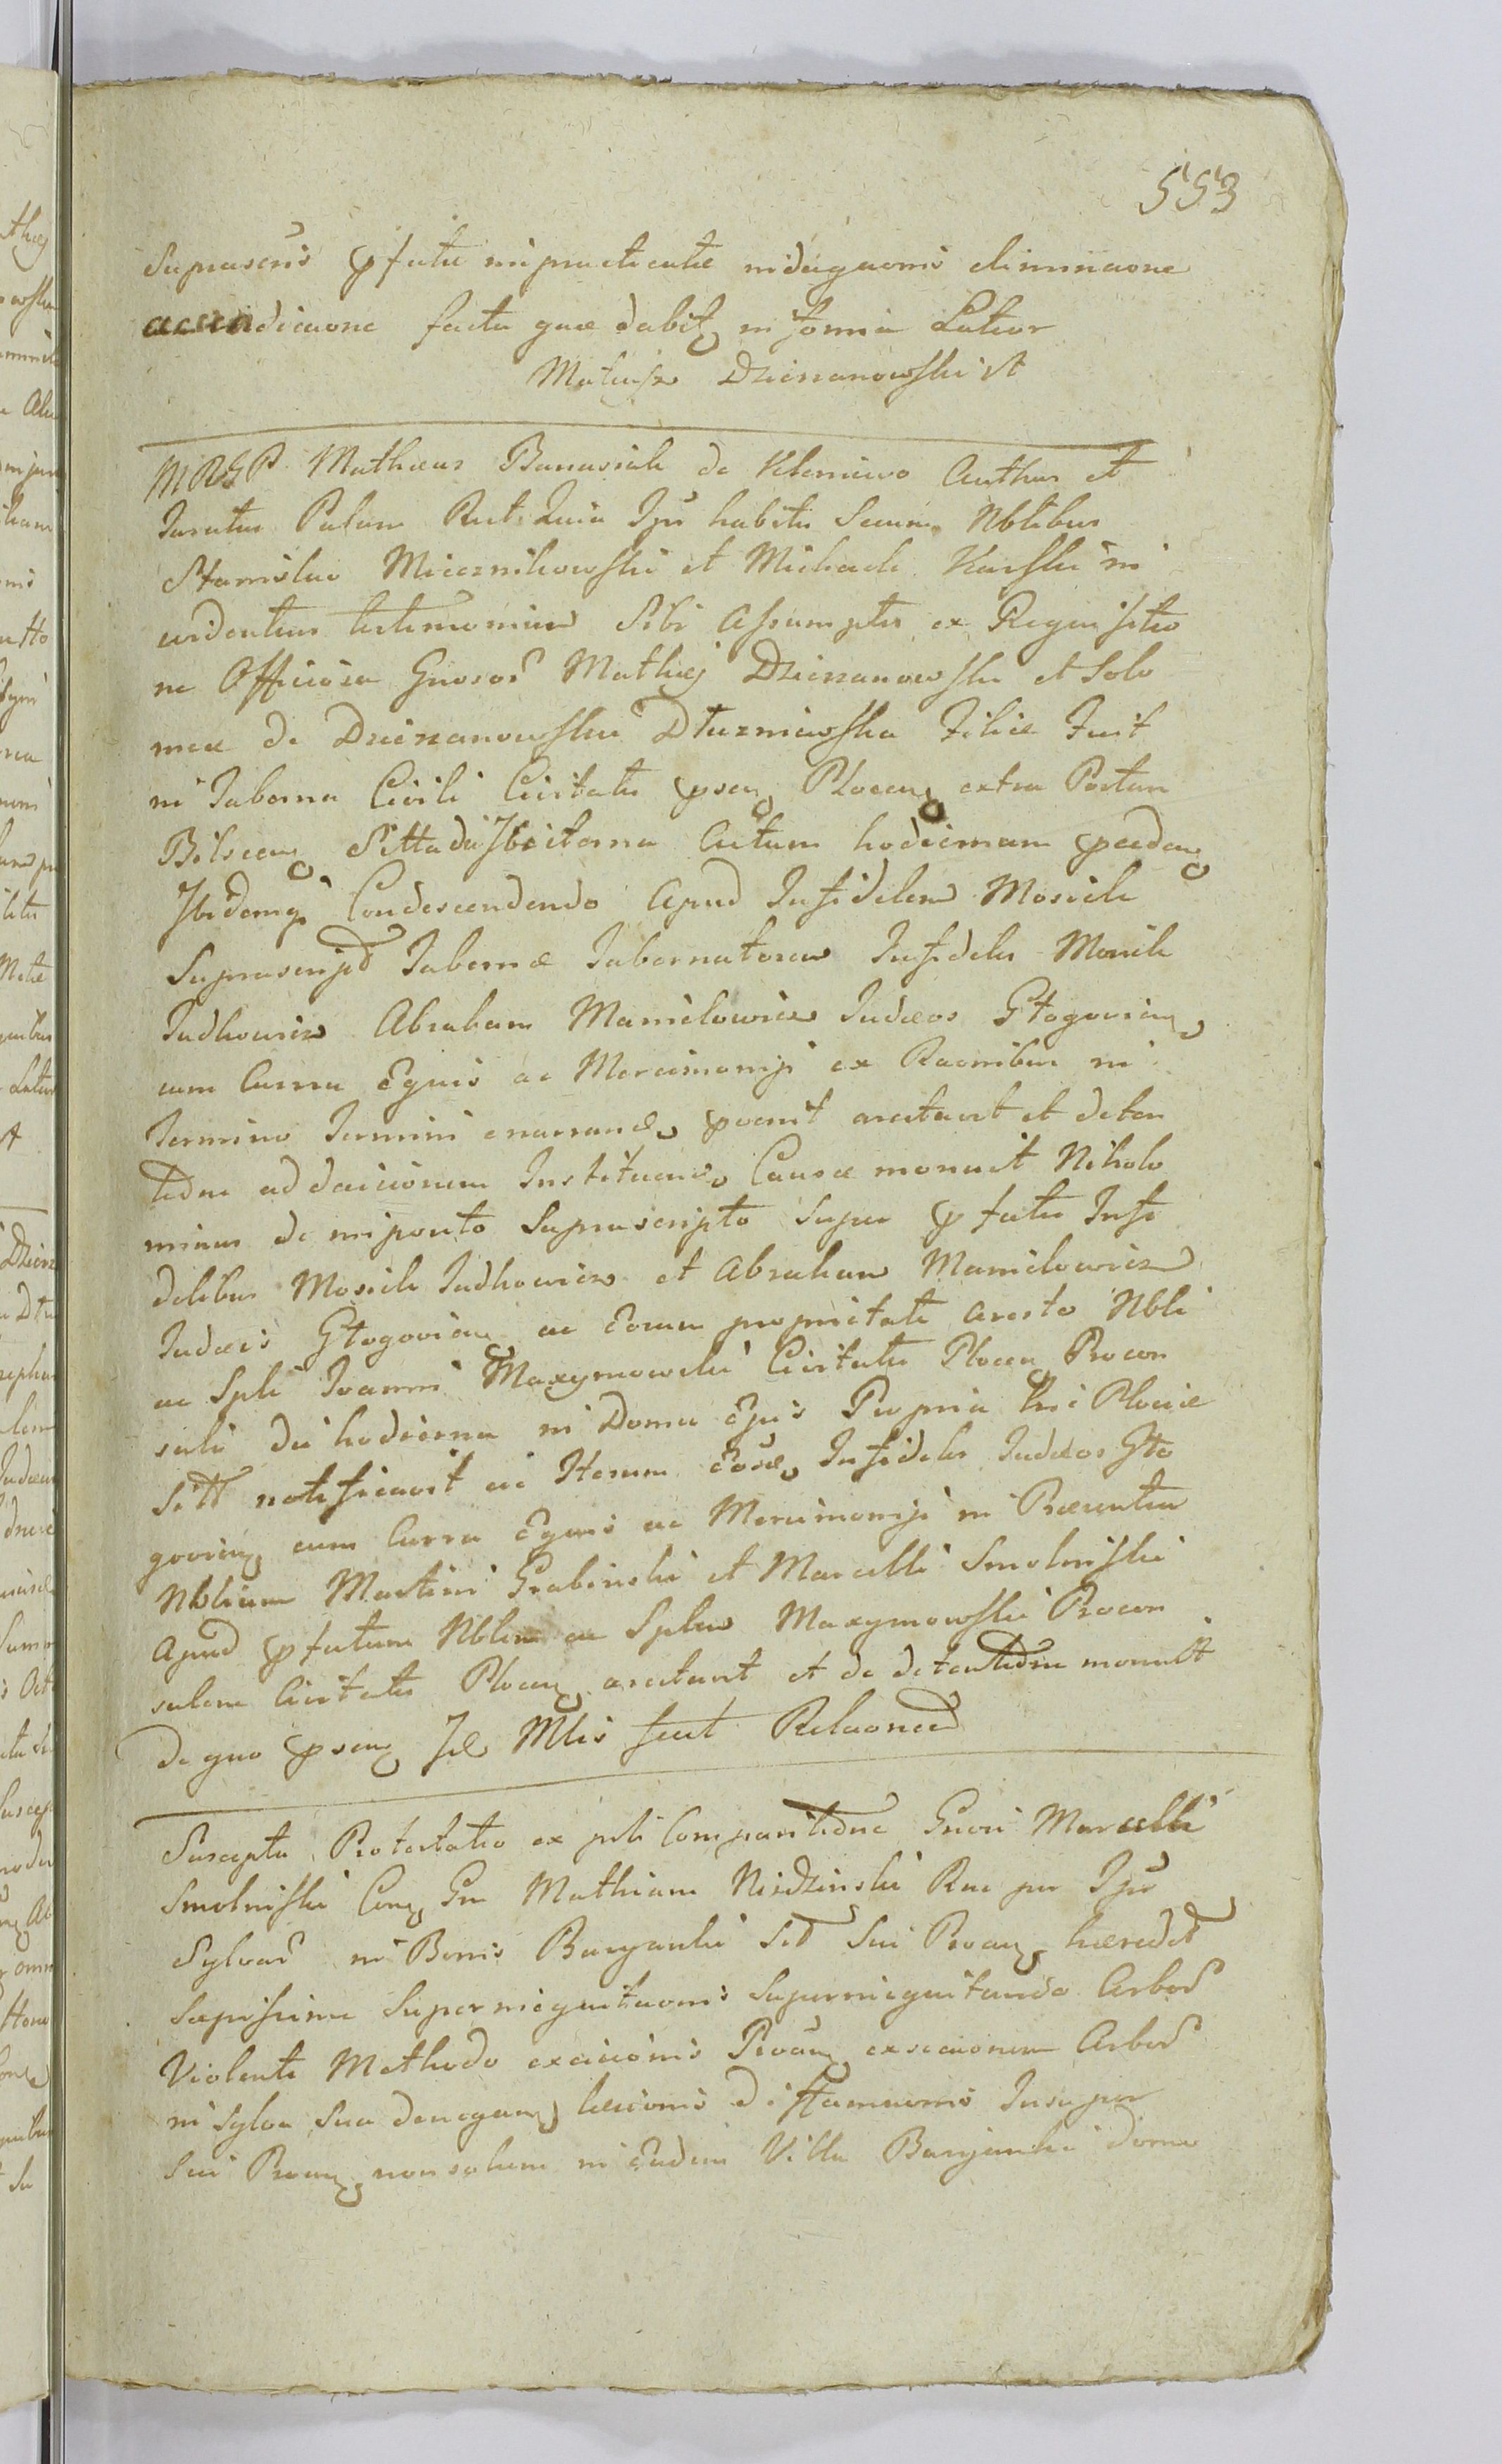 553
Suprascris pfatae inpracticatae indagaonis eliminaone
acun dicaone facta quae dabit in forma Latior
Mateusz Dzierzanowski A
MRGP Mathaeus Banasiak de Kleniewo Authus et
Juratus Palam Rect Quia Ipse habitis Secum Nblibus
Stanislao Miecznikowski et Michaele Karski in
evidentius testimonium Sibi Assumptis ex Requisitio
ne Officiosa Gnosor Mathaej Dzierzanowski et Salo
meae de Dzierzanowskie Dłuzniewska Filiae Fuit
in Taberna Civili Civitatis psen Plocen extra Portam
Bilscen Sitta die Hesterna Actum hodiernam preden
Ibidemq Condescendendo Apud Infidelem Mosiek
Suprascript Tabernae Tabernatorem Infideles Mosiek
Judkowicz Abraham Manielowicz Judaeos Głogovien
cum Curru Equis ac Mercimonijs ex Raonibus in
Termino Termini enarrand poenit arestavit et deten
tedne ad decisionem Instituend Causae monuit Nihilo
minus de imposito Suprascripto Super pfatis Infi
delibus Mosiek Judkowicz et Abraham Manielowicz
Judaeis Głogovien ac Eorum proprietate Aresto Nbli
ac Spli Joanni Maxymowski Civitatis Plocen Procon
suli die hodierna in Domo Ejus Propria hic Plociae
Sitt notificavit ac Iterum Eosd Infideles Judaeos Gło
govien cum Curru Equis ac Mercimonijs in Praesentia
Nblium Martini Grabinski et Marcelli Smolinski
Apud pfatum Nblem ac Splem Maxymowski Procon
sulem Civitatis Plocen arestavit et de detentedne monuit
de quo psen Id Mlis fecit Relaonem
Suscepta Protestatio ex pli Comparitedne Gnosi Marcelli
Smolinski Con Gn Mathiam Niedzinski Rae per Ipse
Sylvar in Bonis Barganki Sed Sui Proan haeredit
Saepissime Superinequitaonis Superinequitando Arbor
Violente Methodo exciionis Proan exsecaionem Arbor
in Sylva Sua denegan laesionis Diffamaonis Insuper
Sui Proan non solum in Eadem Villa Barganki domo